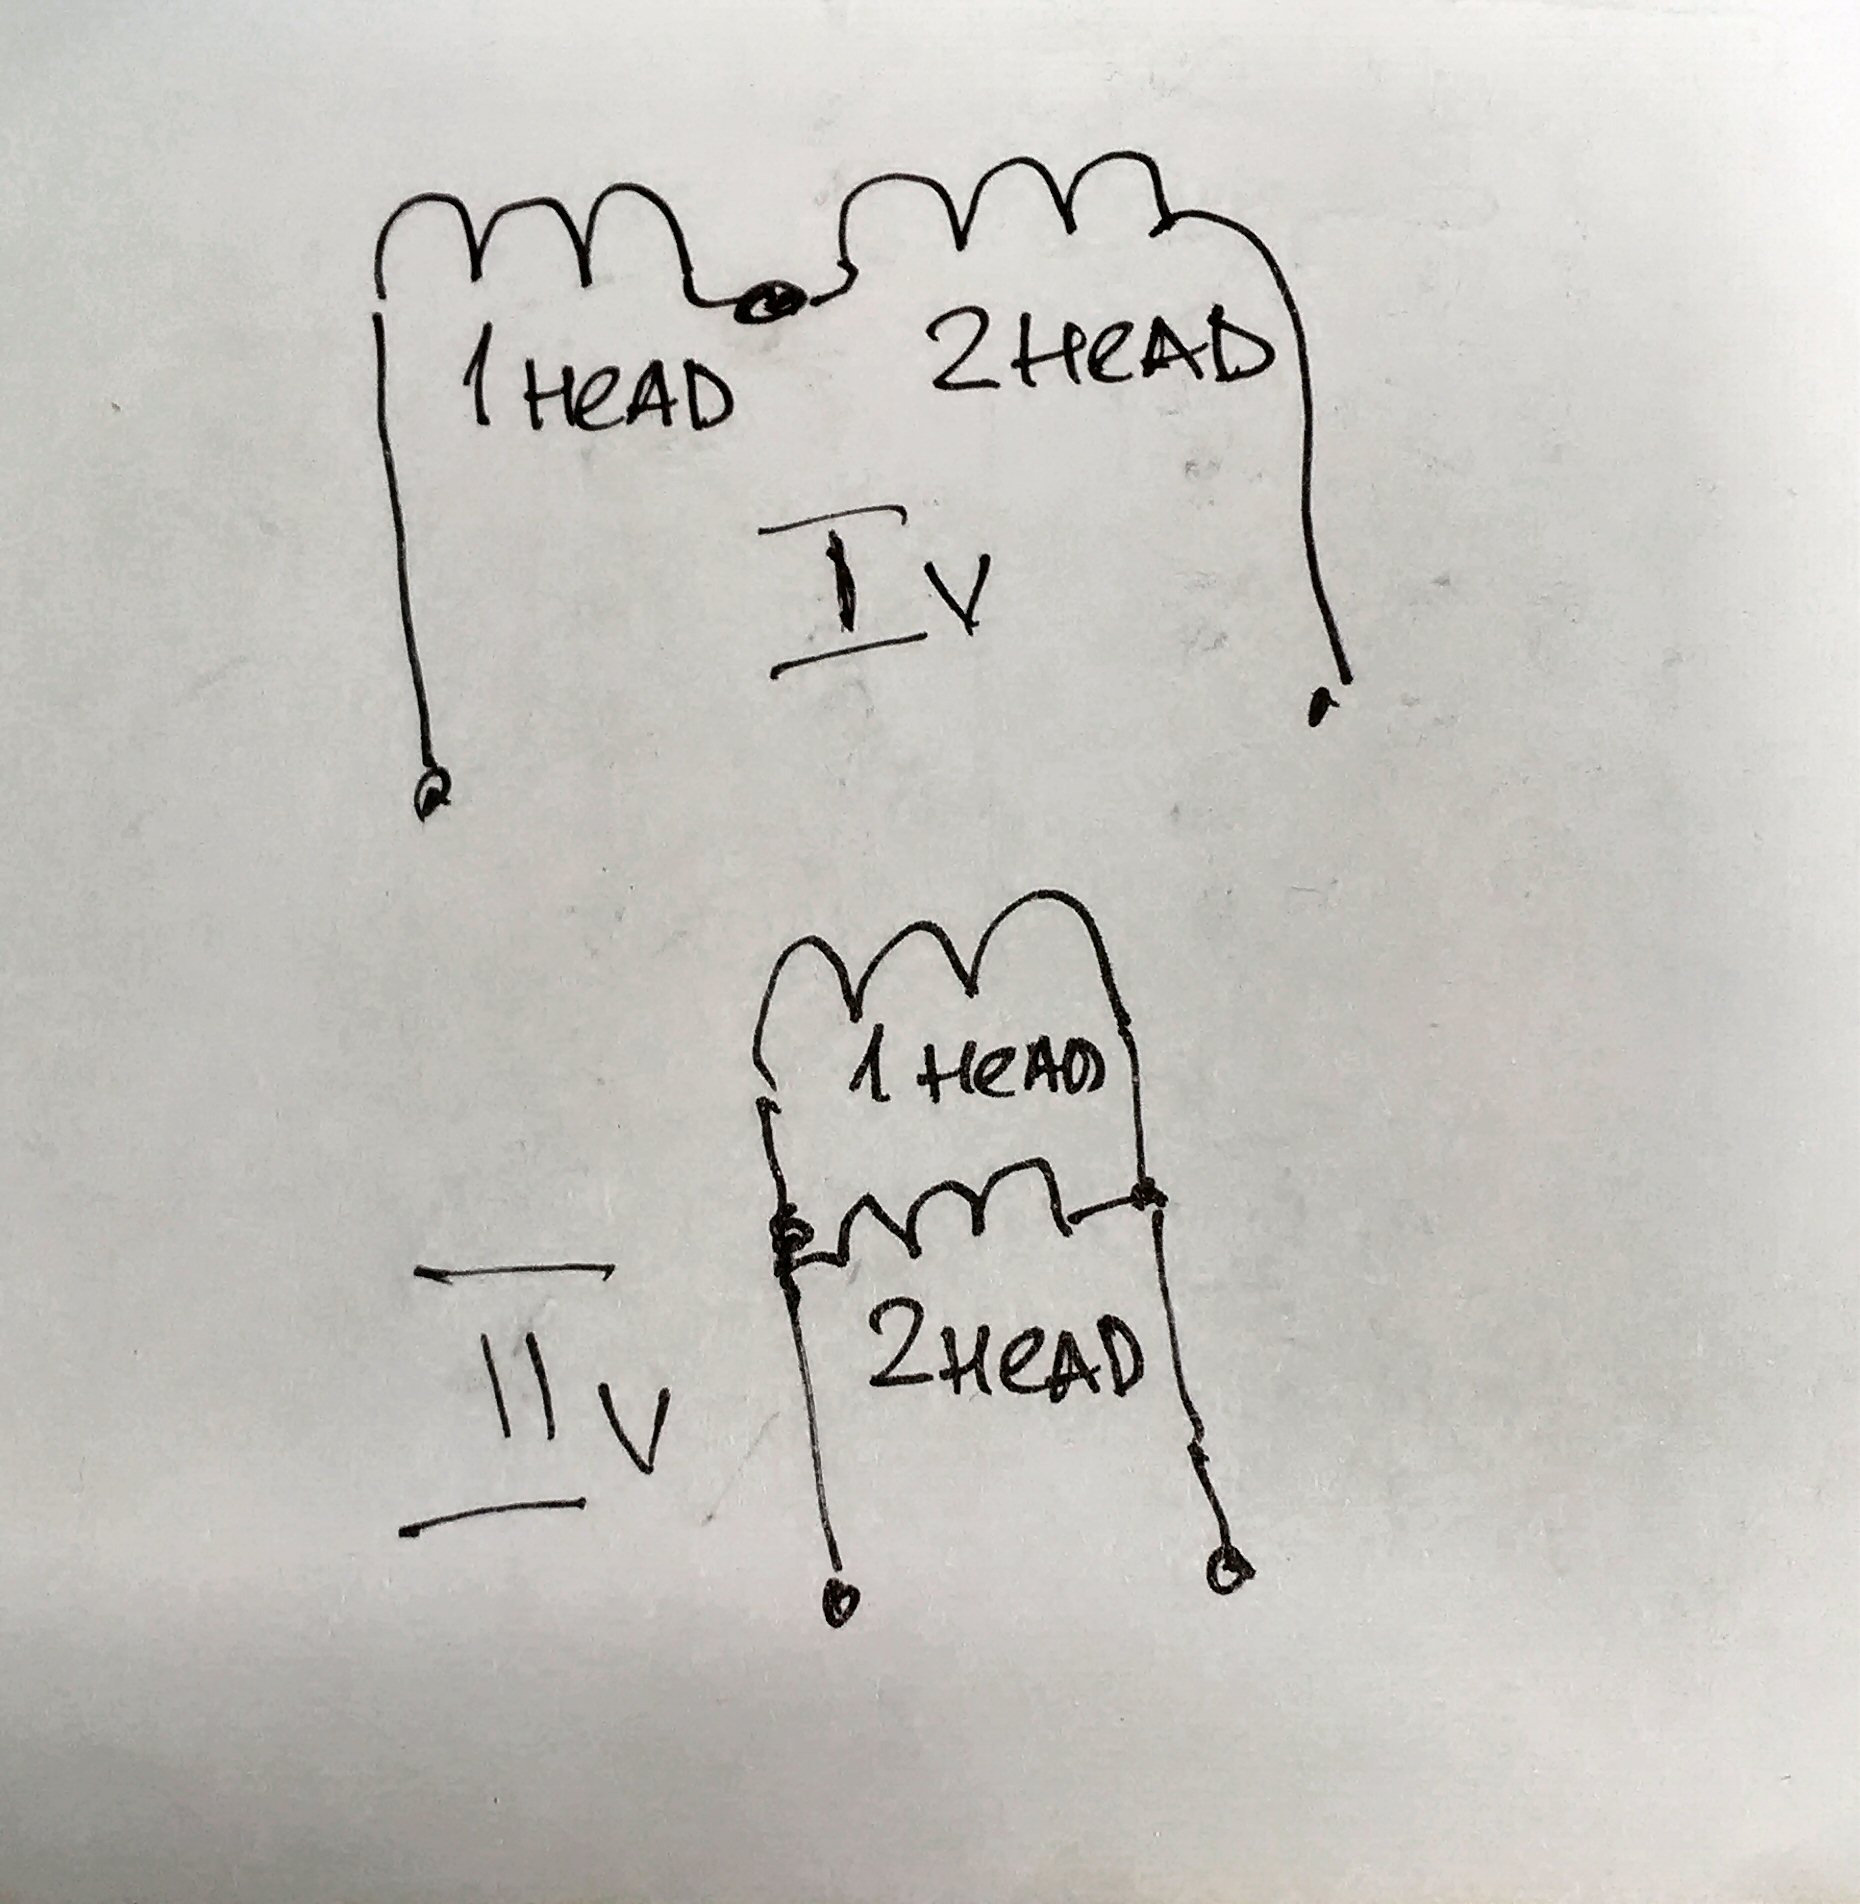 1 HeAD
2 HeAD
I V
1 HeAD
2 HeAD
II V